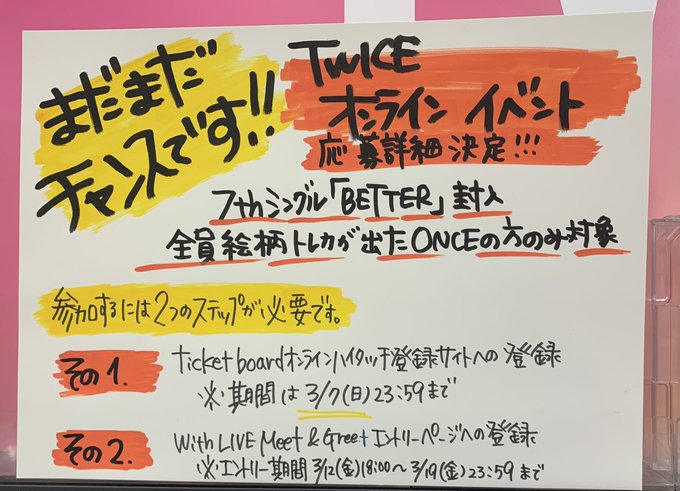 まだまだ
チャンスです!!
TWICE
オンライン イベント
応募詳細決定!!!
7thシングル「BETTER」封入
全員絵柄トレカが出たONCEの方のみ対象
参加するには2つのステップが必要です。
その1.
ticket boardオンラインハイタッチ登録サイトへの登録
※期間は3/7(日)23:59まで
その2.
With LIVE Meet & Greetエントリーページへの登録
※エントリー期間3/12(金)18:00〜3/19(金)23:59まで